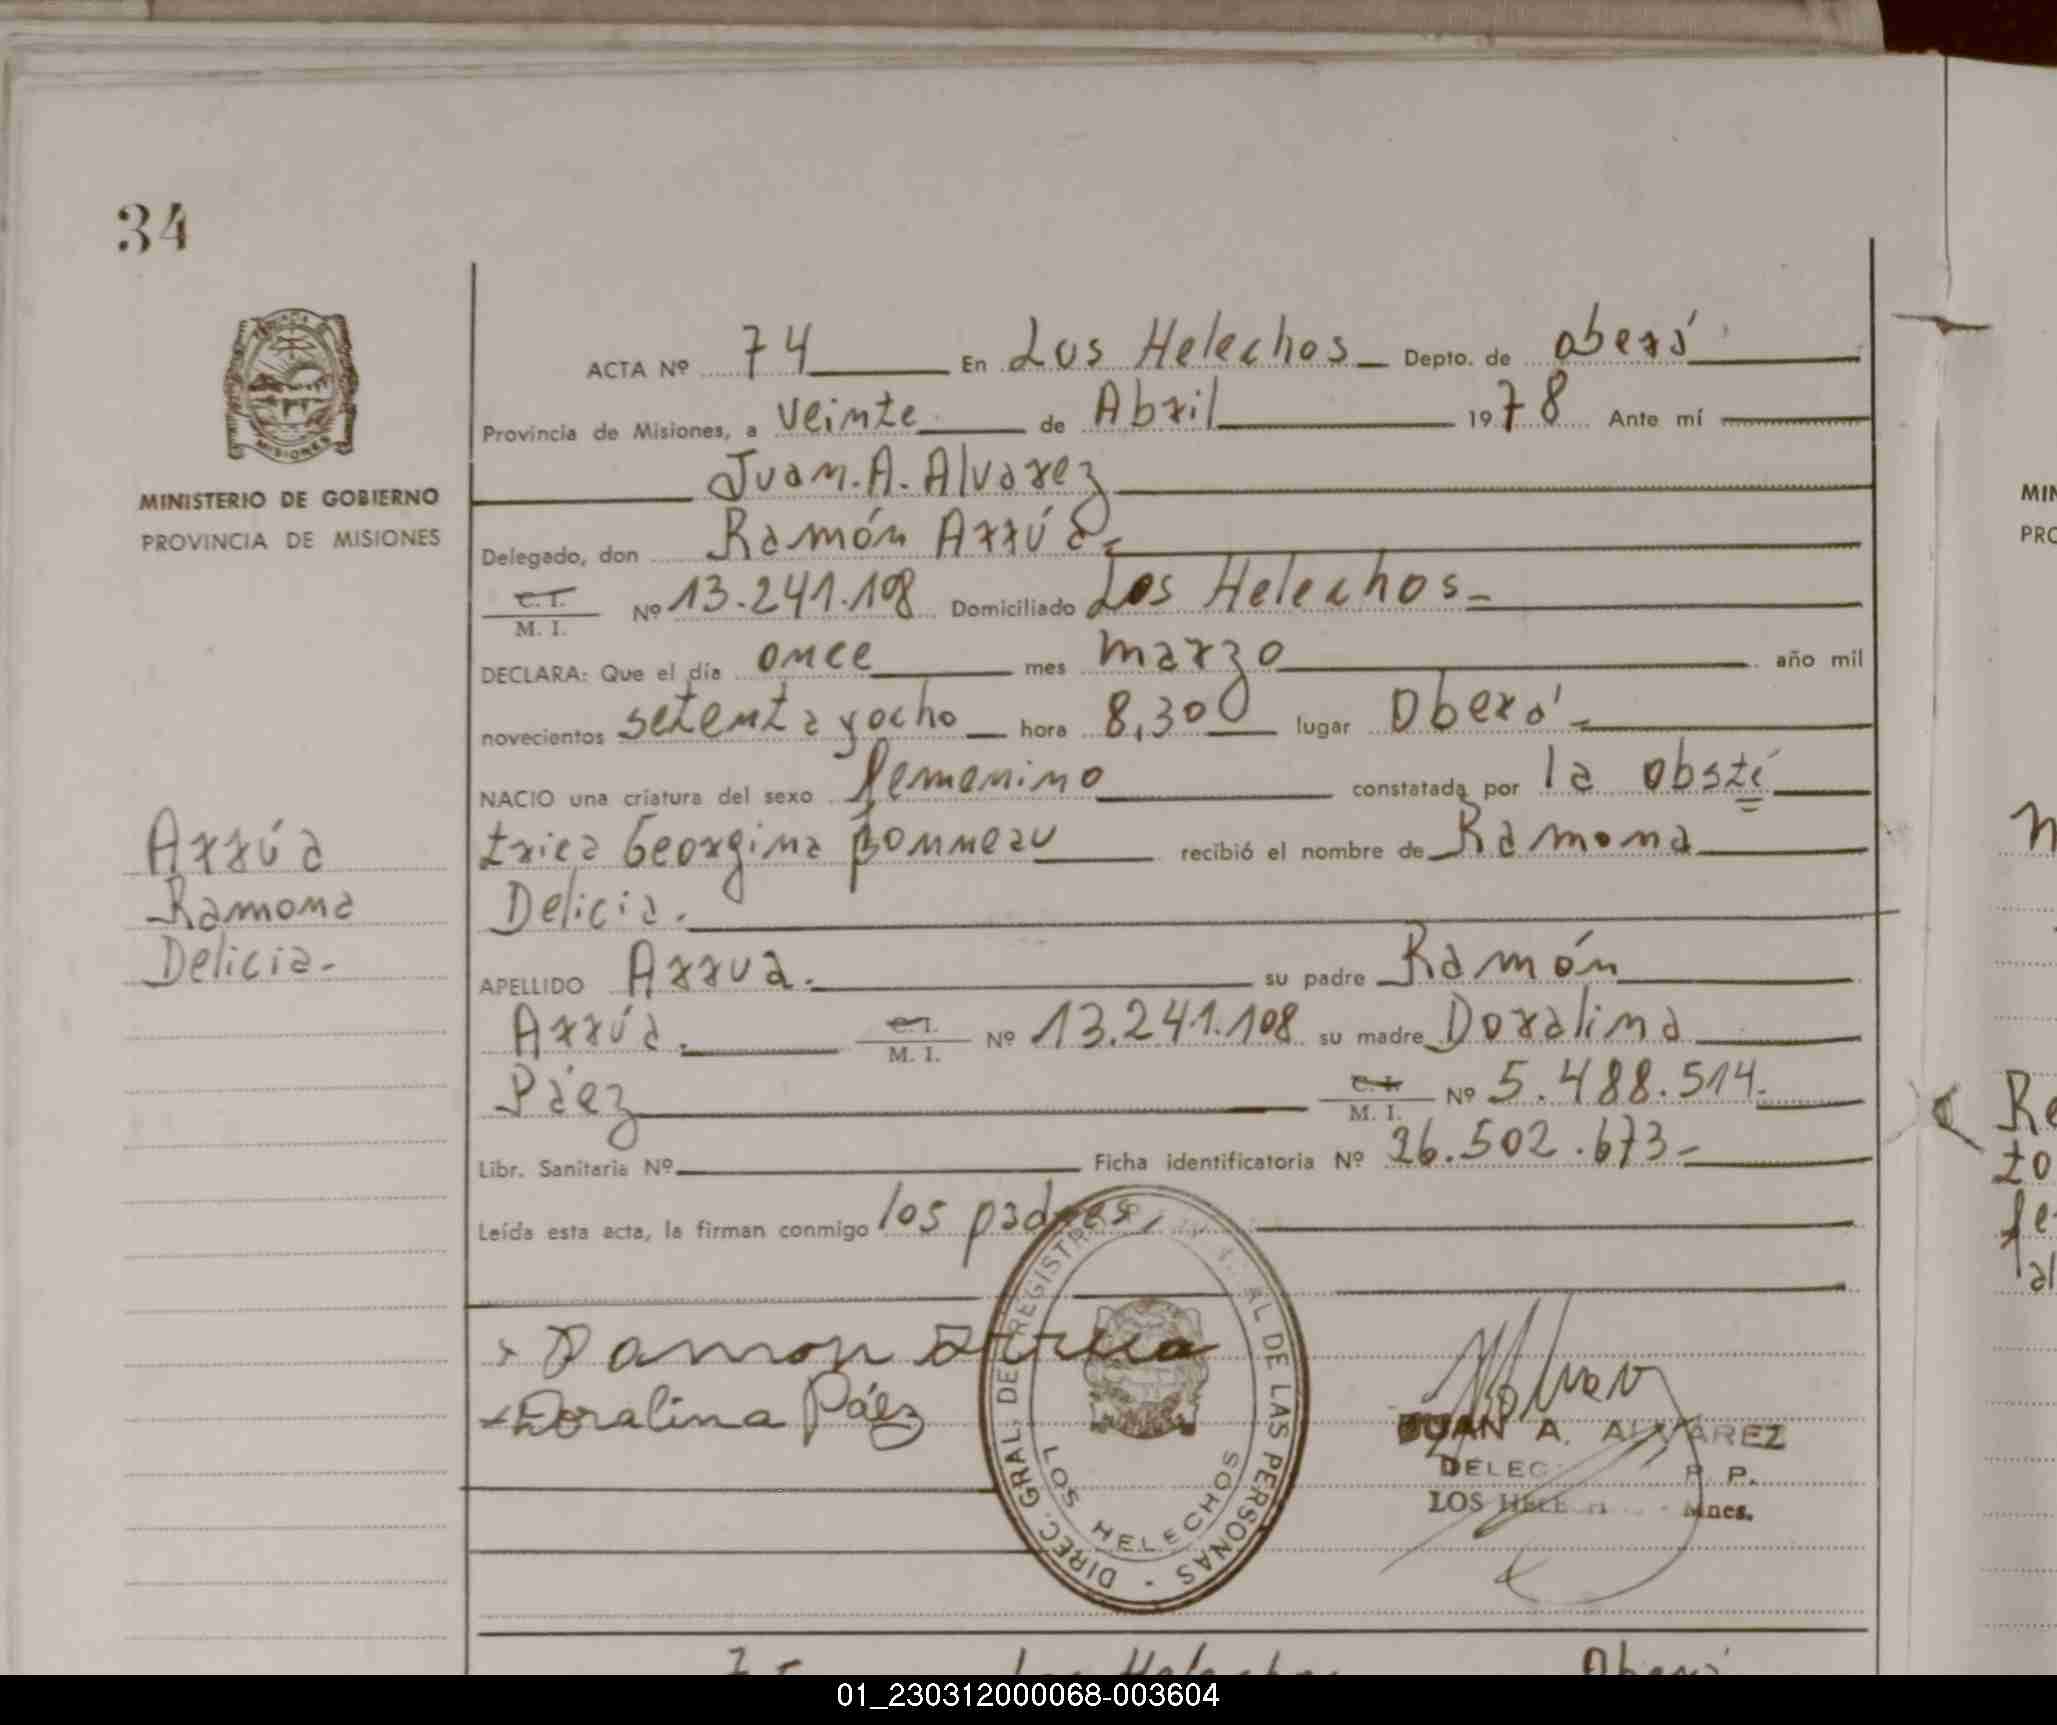 34
MINISTERIO DE GOBIERNO
PROVINCIA DE MISIONES
ACTA Nº 74 En Los Helechos Depto. de oberá
Provincia de Misiones, a veinte de Abril 1978 Ante mí
Juan. A. Alvarez
Delegado, don Ramón Arrúa
C. I.
M. I. Nº 13.241.108 Domiciliado Los Helechos
DECLARA: Que el día once mes marzo año mil
novecientos setenta y ocho hora 8,30 lugar Oberá
NACIO una criatura del sexo femenino constatada por la obsté
trica Georgina Bonneau recibió el nombre de Ramona
Delicia.
APELLIDO Arrua. su padre Ramón
Arrúa. C. I. M. I. Nº 13.241.108 su madre Doralina
Páez C. I. M. I. Nº 5.488.514.
Libr. Sanitaria Nº Ficha identificatoria Nº 26.502.673
Leída esta acta, la firman conmigo los padres.
Arrúa
Ramona
Delicia.
Ramon Arrua
Doralina Páez
DIREC. GRAL. DE REGISTR AL DE LAS PERSONAS
LOS HELECHOS
JUAN A. ALVAREZ
DELEG P. P.
LOS HELECH Mnes.
01_230312000068-003604